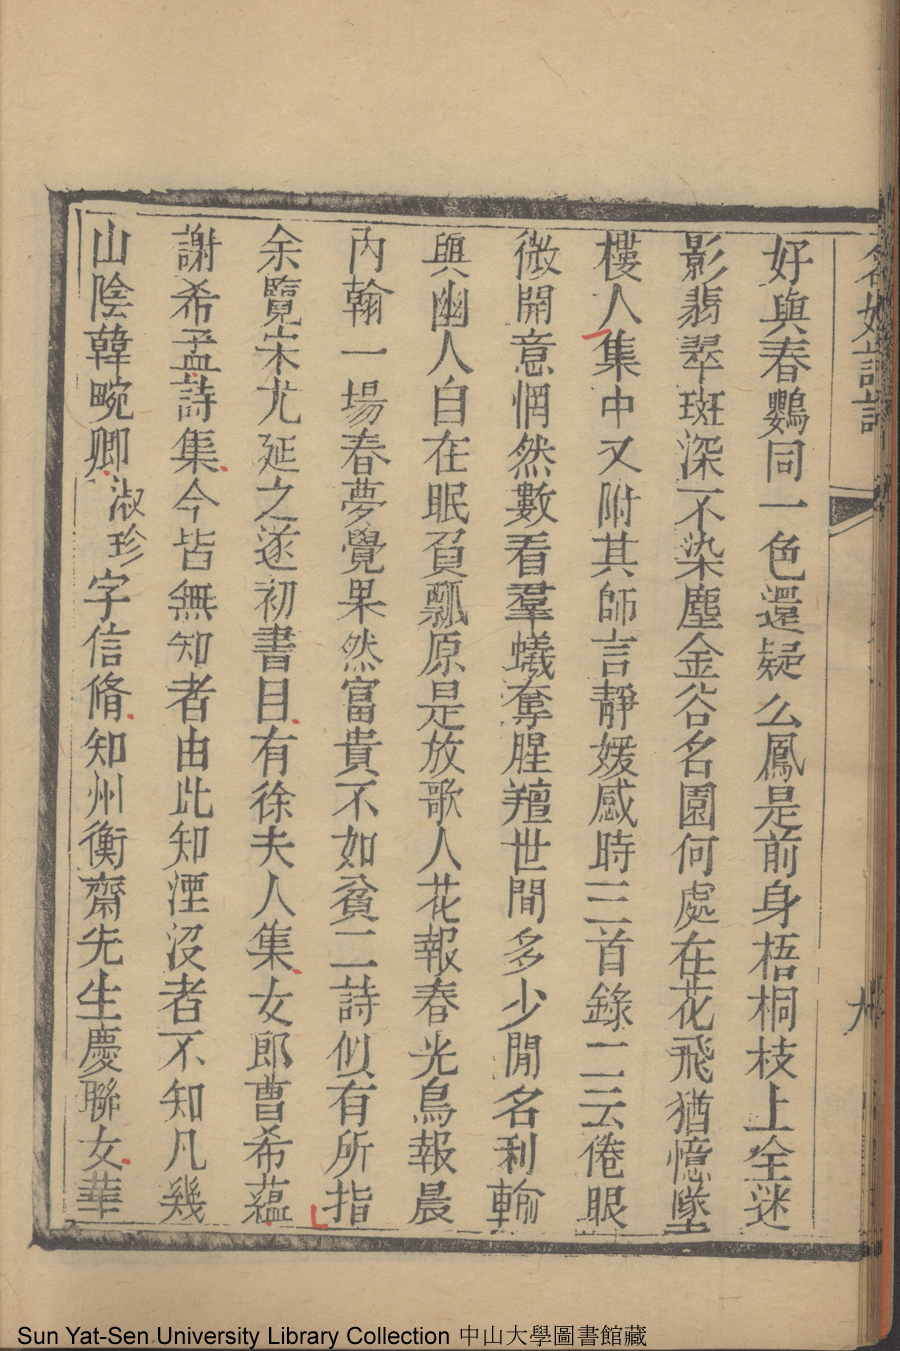 名媛詩話
好與春鸚同一色還疑么鳳是前身梧桐枝上全迷
影翡翠斑深不染塵金谷名園何處在花飛猶憶墜
樓人集中又附其師言靜媛感時三首錄二云倦眼
微開意惘然數看羣蟻奪腥羶世間多少閒名利輸
與幽人自在眠負瓢原是放歌人花報春光鳥報晨
內翰一場春夢覺果然富貴不如貧二詩似有所指
余覽宋尤延之遂初書目有徐夫人集女郎曹希蘊
謝希孟詩集今皆無知者由此知湮沒者不知凡幾
山陰韓畹卿淑珍字信脩知州衡齋先生慶聯女華
Sun Yat-Sen University Library Collection 中山大學圖書館藏